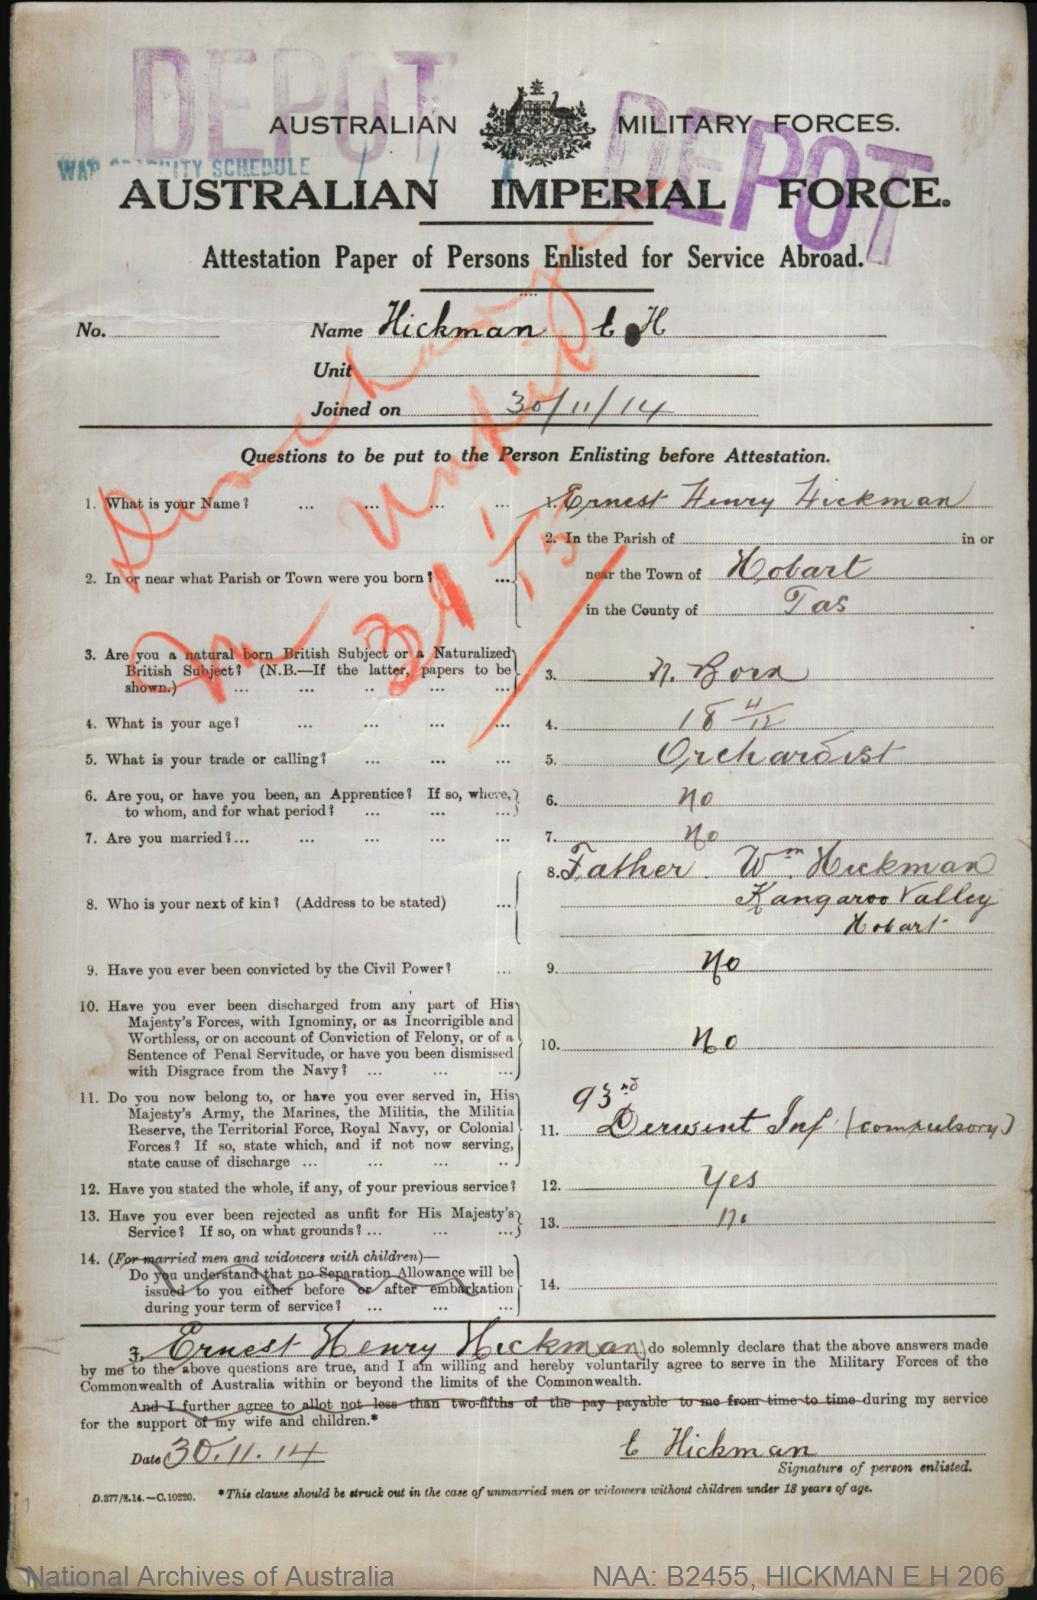 DEPOT
DEPOT
WAR GRATUITY SCHEDULE
AUSTRALIAN MILITARY FORCES.
AUSTRALIAN IMPERIAL FORCE.
Attestation Paper of Persons Enlisted for Service Abroad.
No. Name Hickman E H
Unit
Joined on 30/11/14
Discharged
Unfit
31/1/15
Questions to be put to the Person Enlisting before Attestation.
1. What is your Name? ... ... ... ... 1. Ernest Henry Hickman
2. In or near what Parish or Town were you born? ... 2. In the Parish of in or
near the Town of Hobart
in the County of Tas
3. Are you a natural born British Subject or a Naturalized
British Subject? (N.B.—If the latter, papers to be
shown.) ... ... .. ... ... 3. N. Born
4. What is your age? ... ... ... ... 4. 18 4/12
5. What is your trade or calling? ... ... ... 5. Orchardist
6. Are you, or have you been, an Apprentice? If so, where,
to whom, and for what period? ... ... ... 6. No
7. Are you married?... ... ... ... ... 7. No
8. Who is your next of kin? (Address to be stated) ... 8. Father. Wm. Hickman
Kangaroo Valley
Hobart
9. Have you ever been convicted by the Civil Power? ... 9. No
10. Have you ever been discharged from any part of His
Majesty's Forces, with Ignominy, or as Incorrigible and
Worthless, or on account of Conviction of Felony, or of a
Sentence of Penal Servitude, or have you been dismissed
with Disgrace from the Navy? ... ... ... 10. No
11. Do you now belong to, or have you ever served in, His
Majesty's Army, the Marines, the Militia, the Militia
Reserve, the Territorial Force, Royal Navy, or Colonial
Forces? If so, state which, and if not now serving,
state cause of discharge ... ... ... .. 11. 93rd Derwent Inf (compulsory)
12. Have you stated the whole, if any, of your previous service? 12. Yes
13. Have you ever been rejected as unfit for His Majesty's
Service? If so, on what grounds? ... ... ... 13. No
14. (For married men and widowers with children)—
Do you understand that no Separation Allowance will be
issued to you either before or after embarkation
during your term of service? ... ... ... 14.
I, Ernest Henry Hickman do solemnly declare that the above answers made
by me to the above questions are true, and I am willing and hereby voluntarily agree to serve in the Military Forces of the
Commonwealth of Australia within or beyond the limits of the Commonwealth.
And I further agree to allot not less than two-fifths of the pay payable to me from time to time during my service
for the support of my wife and children.*
Date 30.11.14 E Hickman
Signature of person enlisted.
D.377/8.14.—C.10220. *This clause should be struck out in the case of unmarried men or widowers without children under 18 years of age.
National Archives of Australia NAA: B2455, HICKMAN E H 206